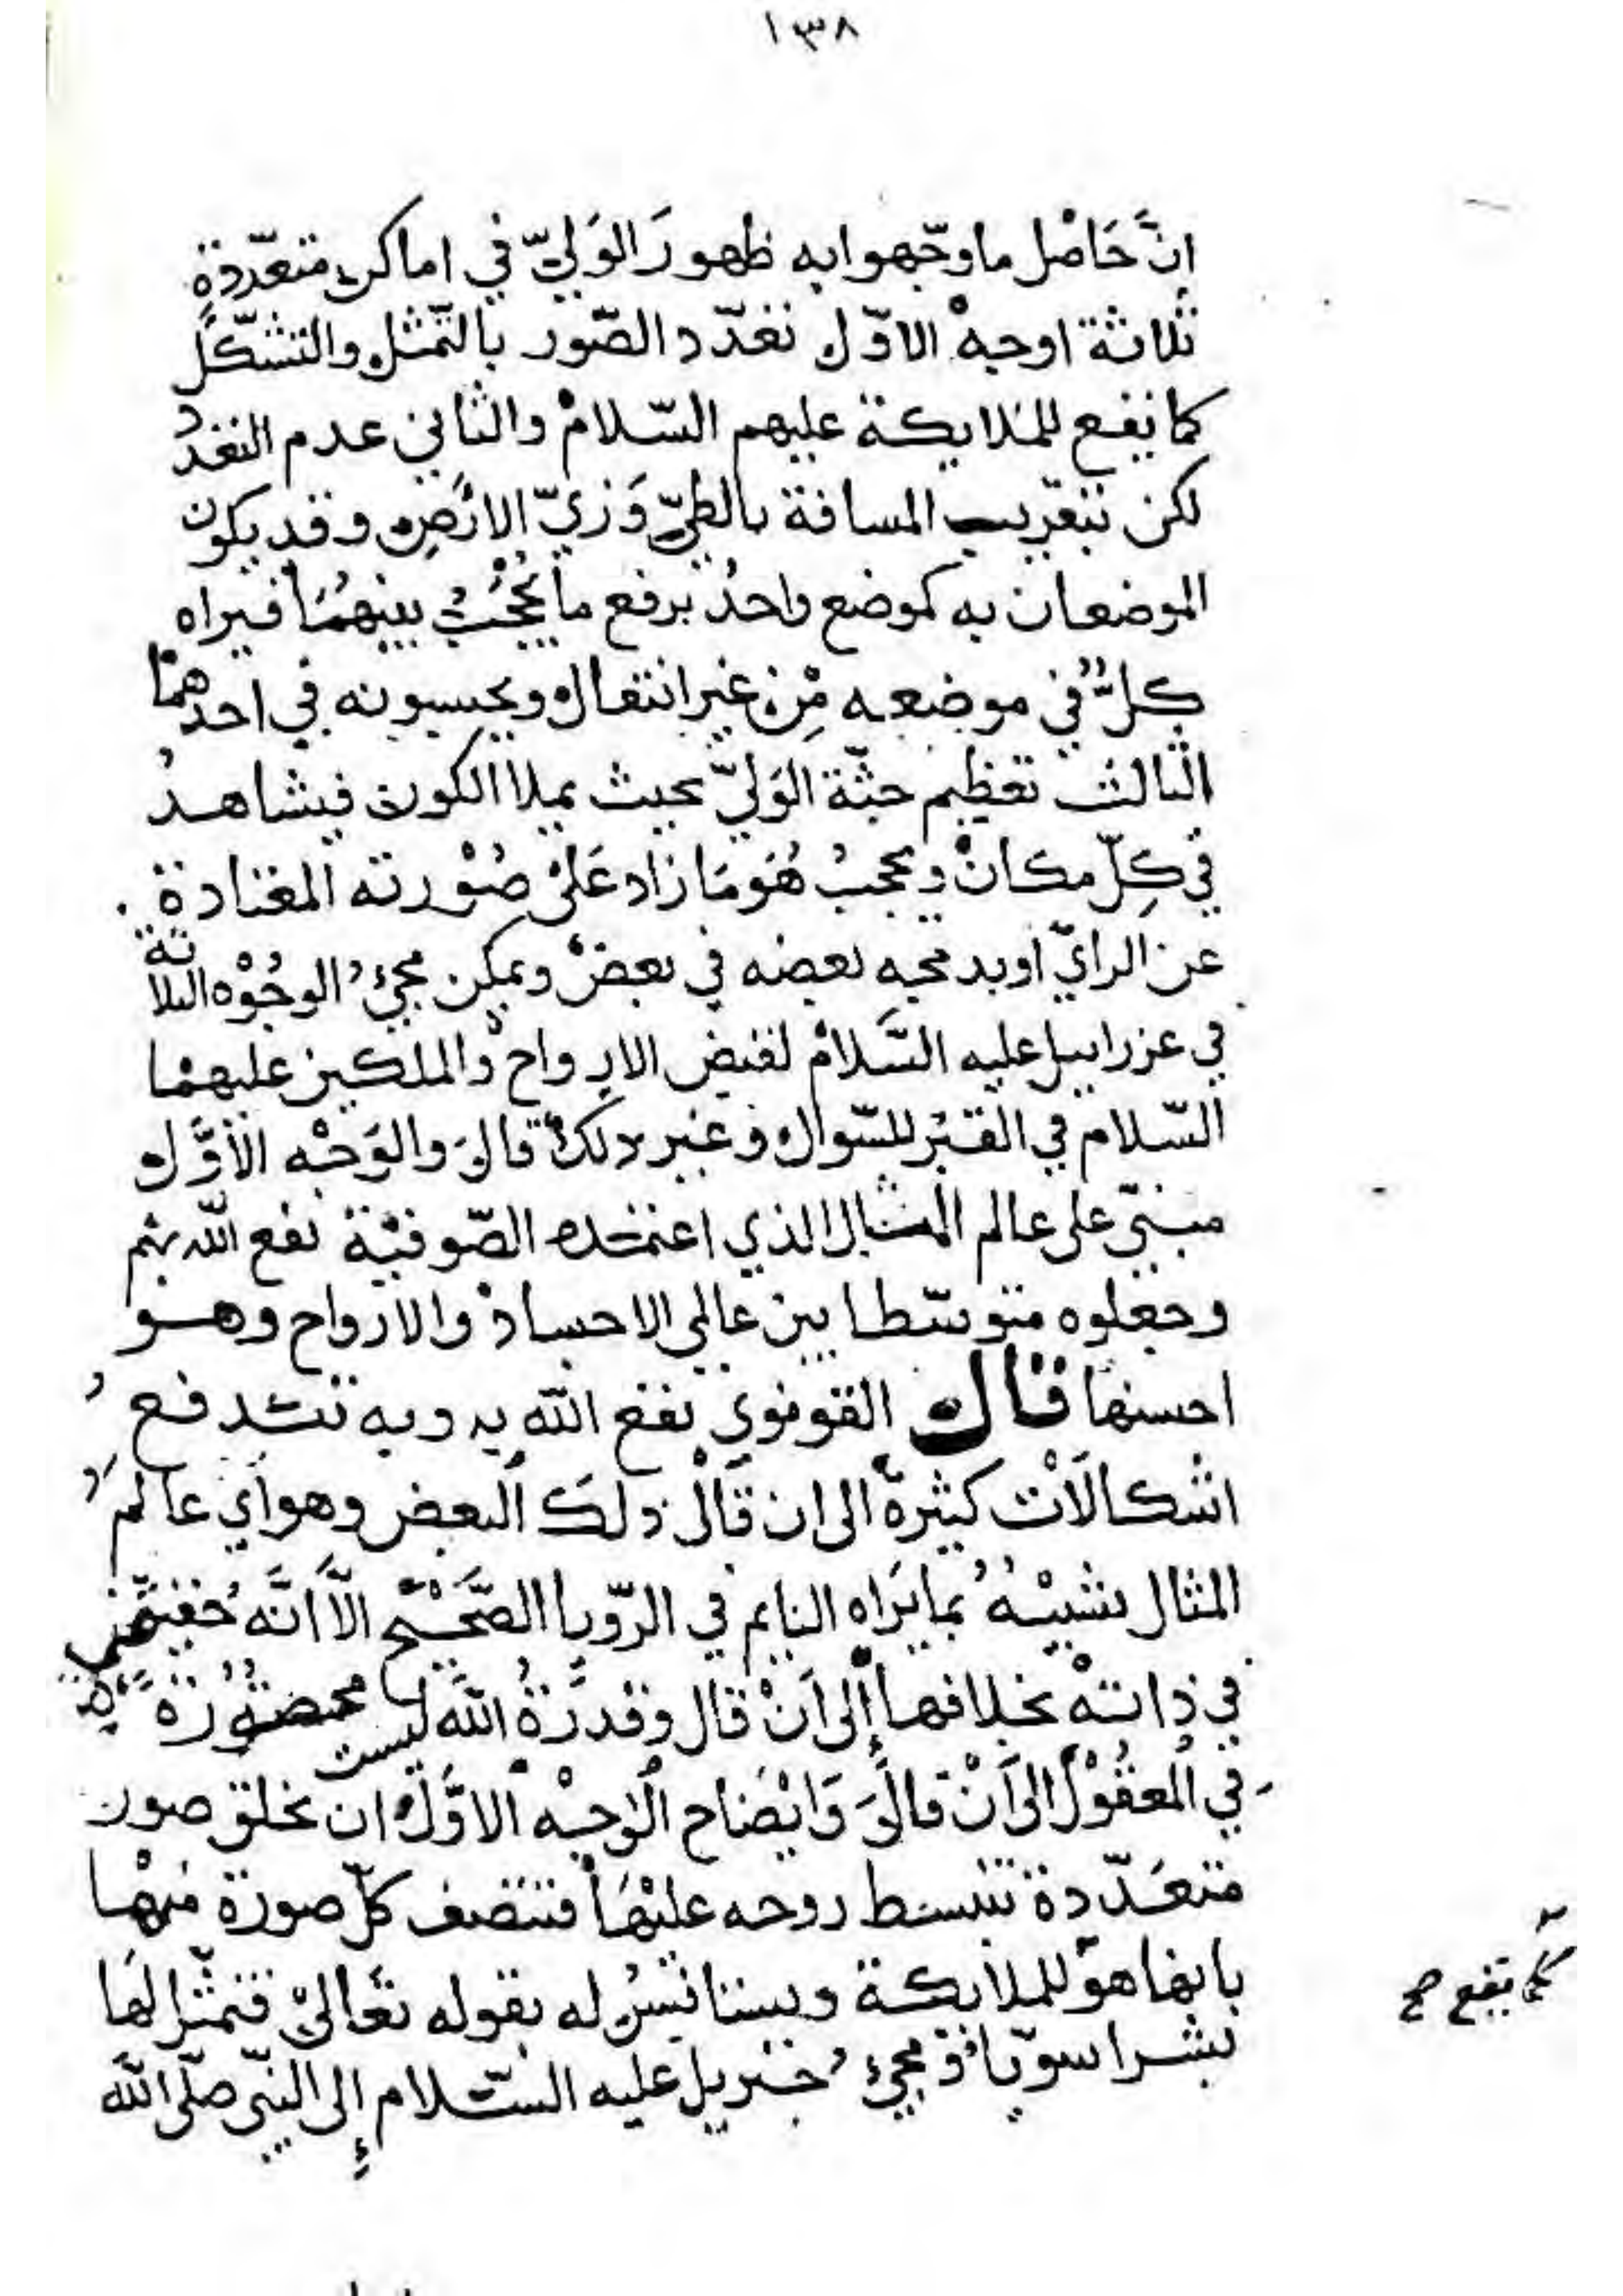 ١٣٨
انَّ حَاصْل ماوجّهوا به ظهورَ الوَليّ في اماكن متعدّدةٍ
ثلاثة اوجهْ الاوّل تعدّد الصّور بالتّمثل والتشكّل
كما يقع للملايكة عليهم السّلامْ والثاني عدم التعدد
لكن بتقريب المسافة بالطيّ وَزيّ الارْضِ وقد يكون
الموضعان به كموضع واحدْ برفع ما يحْجُبُ بينهُمَا فيراه
كلٌّ في موضعه مِنْ غير انتقال ويحسبونه في احدهما
الثالث تعظيم جثّة الوَليّ بحيث يملا الكون فيشاهدُ
في كِلّ مكانْ ويحجبُ هُوَ مَا زاد عَلىْ صُوْرته المعتادة
عن الرايّ او يدمجه بعضه في بعضْ ويمكن مجيءُ الوجُوْه الثلاثة
في عزراييل عليه السَّلامْ لقبض الارواحْ والملكين عليهمْا
السّلام في القبْر للسّوال وغير ذلكْ قالَ والوَجْه الأوَّل
مبنيّ على عالم المثال الذي اعتمده الصّوفيْة نفع اللّه بهْم
وجعلوه متوسّطا بين عالمي الاجسادْ والارواح وهو
احسنها قال القونوي نفع اللّه به وبه تندفعُ
اشكالَاْت كثيرة الى ان قَالْ ذلكَ البعض وهو اي عالمُ
المثال شبيْهُ بما يَرَاه النايم في الرّويا الصَّحيْح الّا انَّهُ حقيقي
في ذاتهْ بخلافها إلى اَنْ قال وقدرَةُ اللَّه ليست محصُوْرَةً
في المعقُوْل الى اَنْ قالَ وَايْضَاح الْوَجْه الاوَّل ان يخلق صور
متعَدّدة تنبسط روحه عليْهَا فتتصف كلّ صورة منهْا
بانها هو للملايكة ويستانَسُ له بقوله تَعَالىْ فتمثّل لهَا
بشرا سويّا ومجيءُ جبْريل عليه السّلام إلى النّبي صلّى اللَّه
كما يقع صح